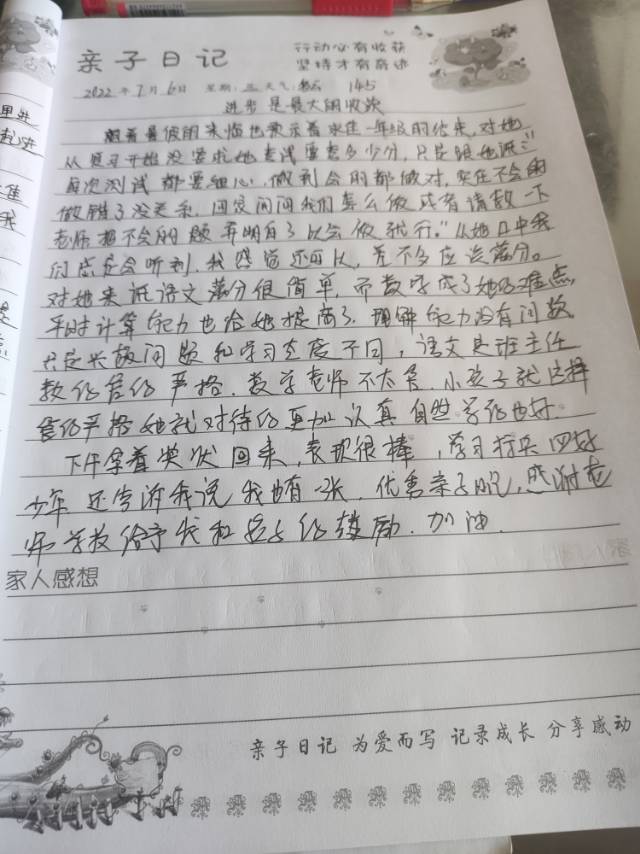 亲子日记
行动必有收获
坚持才有奇迹
2022年7月6日 星期:三 天气: 145
进步是最大的收获
随着暑假的来临也表示着 一年级的结束,对她
从复习开始没要求她考试要考多少分,只是跟她说:"
每次测试都要细心,做到会的都做对,实在不会的
做错了没关系,回家问问我们怎么做或者请教一下
老师把不会的题弄明白了以会做就行。"从她口中我
们总是会听到,我感觉还可以,差不多应该满分。
对她来说语文满分很简单,而数学成了她的难点,
平时计算能力也给她提高了,理解能力没有问题
只是长敌问题和学习态度不同,语文是班主任
教的管的严格,数学老师不太管,小孩子就这样
管的严格她就对待的更加认真自然学的也好
下午拿着奖状回来,表现很棒,学习标兵四好
少年还告诉我说我也有一张,优秀亲子日记,感谢老
师学校给予我和孩子的鼓励,加油
家人感想
亲子日记 为爱而写 记录成长 分享感动